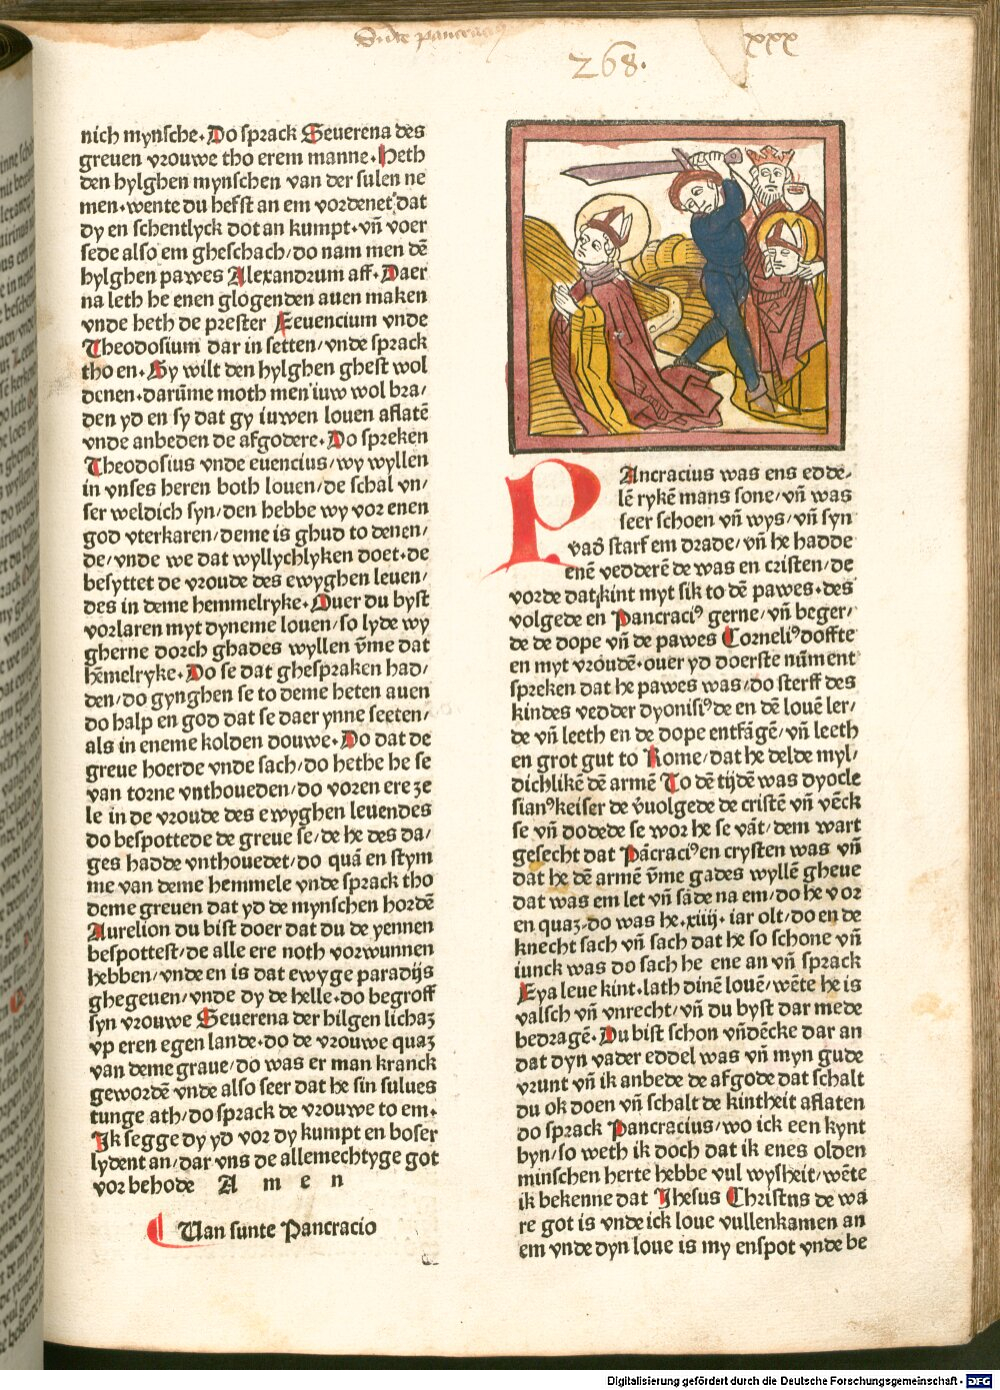 Sūte pancracius
268.
xxx
nich mynsche. Do sprack Seuerena des
greuen vrouwe tho erem manne. Heth
den hylghen mynschen van der sulen ne
men. wente du hefst an em vordenet, dat
dy en schentlyck dot an kumpt. vñ voer
sede also em gheschach/do nam men dē
hylghen pawes Alexandrum aff. Daer
na leth he enen glogenden auen maken
vnde heth de prester Eeuencium vnde
Theodosium dar in setten/vnde sprack
tho en. Gy wilt den hylghen ghest wol
denen. darūme moth men iuw wol bra/
den yd en sy dat gy iuwen louen aflatē
vnde anbeden de afgodere. Do spreken
Theodosius vnde euencius/wy wyllen
in vnses heren both louen/de schal vn/
ser weldich syn/den hebbe wy vor enen
god vterkaren/deme is ghud to denen/
de/vnde we dat wyllychlyken doet. de
besyttet de vroude des ewyghen leuen/
des in deme hemmelryke. Ouer du byst
vorlaren myt dyneme louen/so lyde wy
gherne dorch ghades wyllen v̄me dat
hēmelryke. Do se dat ghespraken had/
den/do gynghen se to deme heten auen
do halp en god dat se daer ynne seeten/
als in eneme kolden douwe. Do dat de
greue hoerde vnde sach/do hethe he se
van torne vnthoueden/do voren ere ze
le in de vroude des ewyghen leuendes
do bespottede de greue se/de he des da/
ges hadde vnthouedet/do quā en stym
me van deme hemmele vnde sprack tho
deme greuen dat yd de mynschen hordē
Aurelion du bist doer dat du de yennen
bespottest/de alle ere noth vorwunnen
hebben/vnde en is dat ewyge paradijs
ghegeuen/vnde dy de helle. do begroff
syn vrouwe Seuerena der hilgen lichaz
vp eren egen lande. do de vrouwe quaz
van deme graue/do was er man kranck
gewordē vnde also seer dat he sin sulues
tunge ath/do sprack de vrouwe to em.
Jk segge dy yd vor dy kumpt en boser
lydent an/dar vns de allemechtyge got
vor behode A m e n
Uan sunte Pancracio
PAncracius was ens edde-
lē rykē mans sone/vñ was
seer schoen vñ wys/vñ syn
vad' starf em drade/vñ he hadde
enē vedderē de was en cristen/de
vorde dat kint myt sik to dē pawes. des
volgede en Pancraciꝰ gerne/vñ beger/
de de dope vñ de pawes Corneliꝰ doffte
en myt vröudē. ouer yd doerste nūment
spreken dat he pawes was/do sterff des
kindes vedder dyonisiꝰ de en dē louē ler/
de vñ leeth en de dope entfāgē/vñ leeth
en grot gut to Rome/dat he delde myl/
dichlikē dē armē To dē tijdē was dyocle
sianꝰ keiser de v̄uolgede de cristē vñ vēck
se vñ dodede se wor he se vāt/dem wart
gesecht dat Pācraciꝰ en crysten was vñ
dat he dē armē v̄me gades wyllē gheue
dat was em let vñ sāde na em/do he vor
en quaz. do was he. xiiij. iar olt/do en de
knecht sach vñ sach dat he so schone vñ
iunck was do sach he ene an vñ sprack
Eya leue kint. lath dinē louē/wēte he is
valsch vñ vnrecht/vñ du byst dar mede
bedragē. Du bist schon vñ dēcke dar an
dat dyn vader eddel was vñ myn gude
vrunt vñ ik anbede de afgode dat schalt
du ok doen vñ schalt de kintheit aflaten
do sprack Pancracius/wo ick een kynt
byn/so weth ik doch dat ik enes olden
minschen herte hebbe vul wysheit/wēte
ik bekenne dat Jhesus Christns de wa
re got is vnde ick loue vullenkamen an
em vnde dyn loue is my enspot vnde be
Digitalisierung gefördert durch die Deutsche Forschungsgemeinschaft - DFG